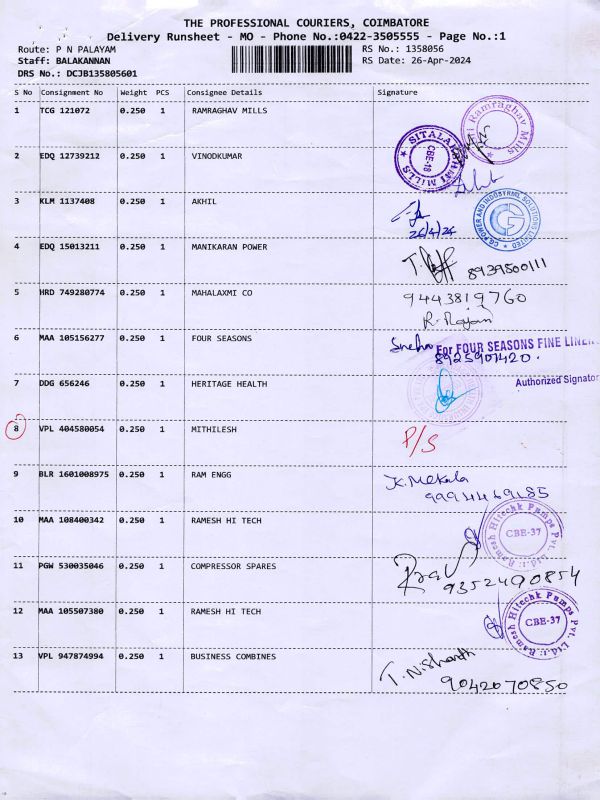 THE PROFESSIONAL COURIERS, COIMBATORE
Delivery Runsheet - MO - Phone No.:0422-3505555 - Page No.:1
Route: P N PALAYAM RS No.: 1358056
Staff: BALAKANNAN RS Date: 26-Apr-2024
DRS No.: DCJB135805601
S No Consignment No Weight PCS Consignee Details Signature
1 TCG 121072 0.250 1 RAMRAGHAV MILLS
Sri Ramraghav Mills
SITALAKSHMI MILLS
CBE-18
2 EDQ 12739212 0.250 1 VINODKUMAR
3 KLM 1137408 0.250 1 AKHIL
26/4/24
CG POWER AND INDUSTRIAL SOLUTIONS LIMITED
CG
4 EDQ 15013211 0.250 1 MANIKARAN POWER
8939500111
5 HRD 749280774 0.250 1 MAHALAXMI CO
9443819760
R. Rajan
6 MAA 105156277 0.250 1 FOUR SEASONS
Sneha For FOUR SEASONS FINE LINEN
8925901420.
7 DDG 656246 0.250 1 HERITAGE HEALTH
Authorized Signator
8 VPL 404580054 0.250 1 MITHILESH
P/S
9 BLR 1601008975 0.250 1 RAM ENGG
K. Mekala
9994469185
10 MAA 108400342 0.250 1 RAMESH HI TECH
Ramesh Hitechk Pumps Pvt. Ltd.
CBE-37
11 PGW 530035046 0.250 1 COMPRESSOR SPARES
9352490854
12 MAA 105507380 0.250 1 RAMESH HI TECH
Ramesh Hitechk Pumps Pvt. Ltd.
CBE-37
13 VPL 947874994 0.250 1 BUSINESS COMBINES
T. Nishanth
9042070850